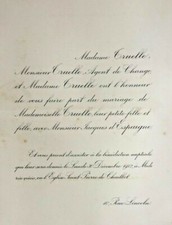 Madame Truelle,
Monsieur Truelle, Agent de Change
et Madame Truelle ont l'honneur
de vous faire part du mariage de
Mademoiselle Truelle leur petite fille et
fille, avec Monsieur Jacques d'Espagne
Et vous prient d'assister à la bénédiction nuptiale
qui leur sera donnée le Lundi Décembre à Midi
en l'Eglise Saint Pierre de Chaillot